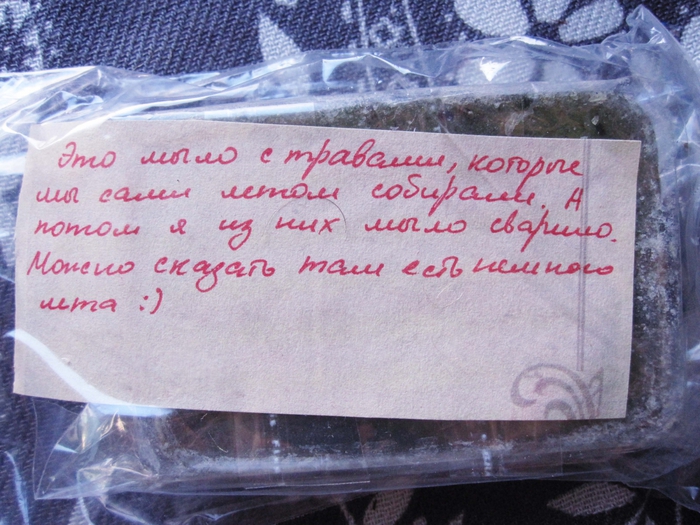 Это мыло с травами, которые
мы сами летом собирали. А
потом я из них мыло сварило.
Можно сказать там есть немного
лета :)